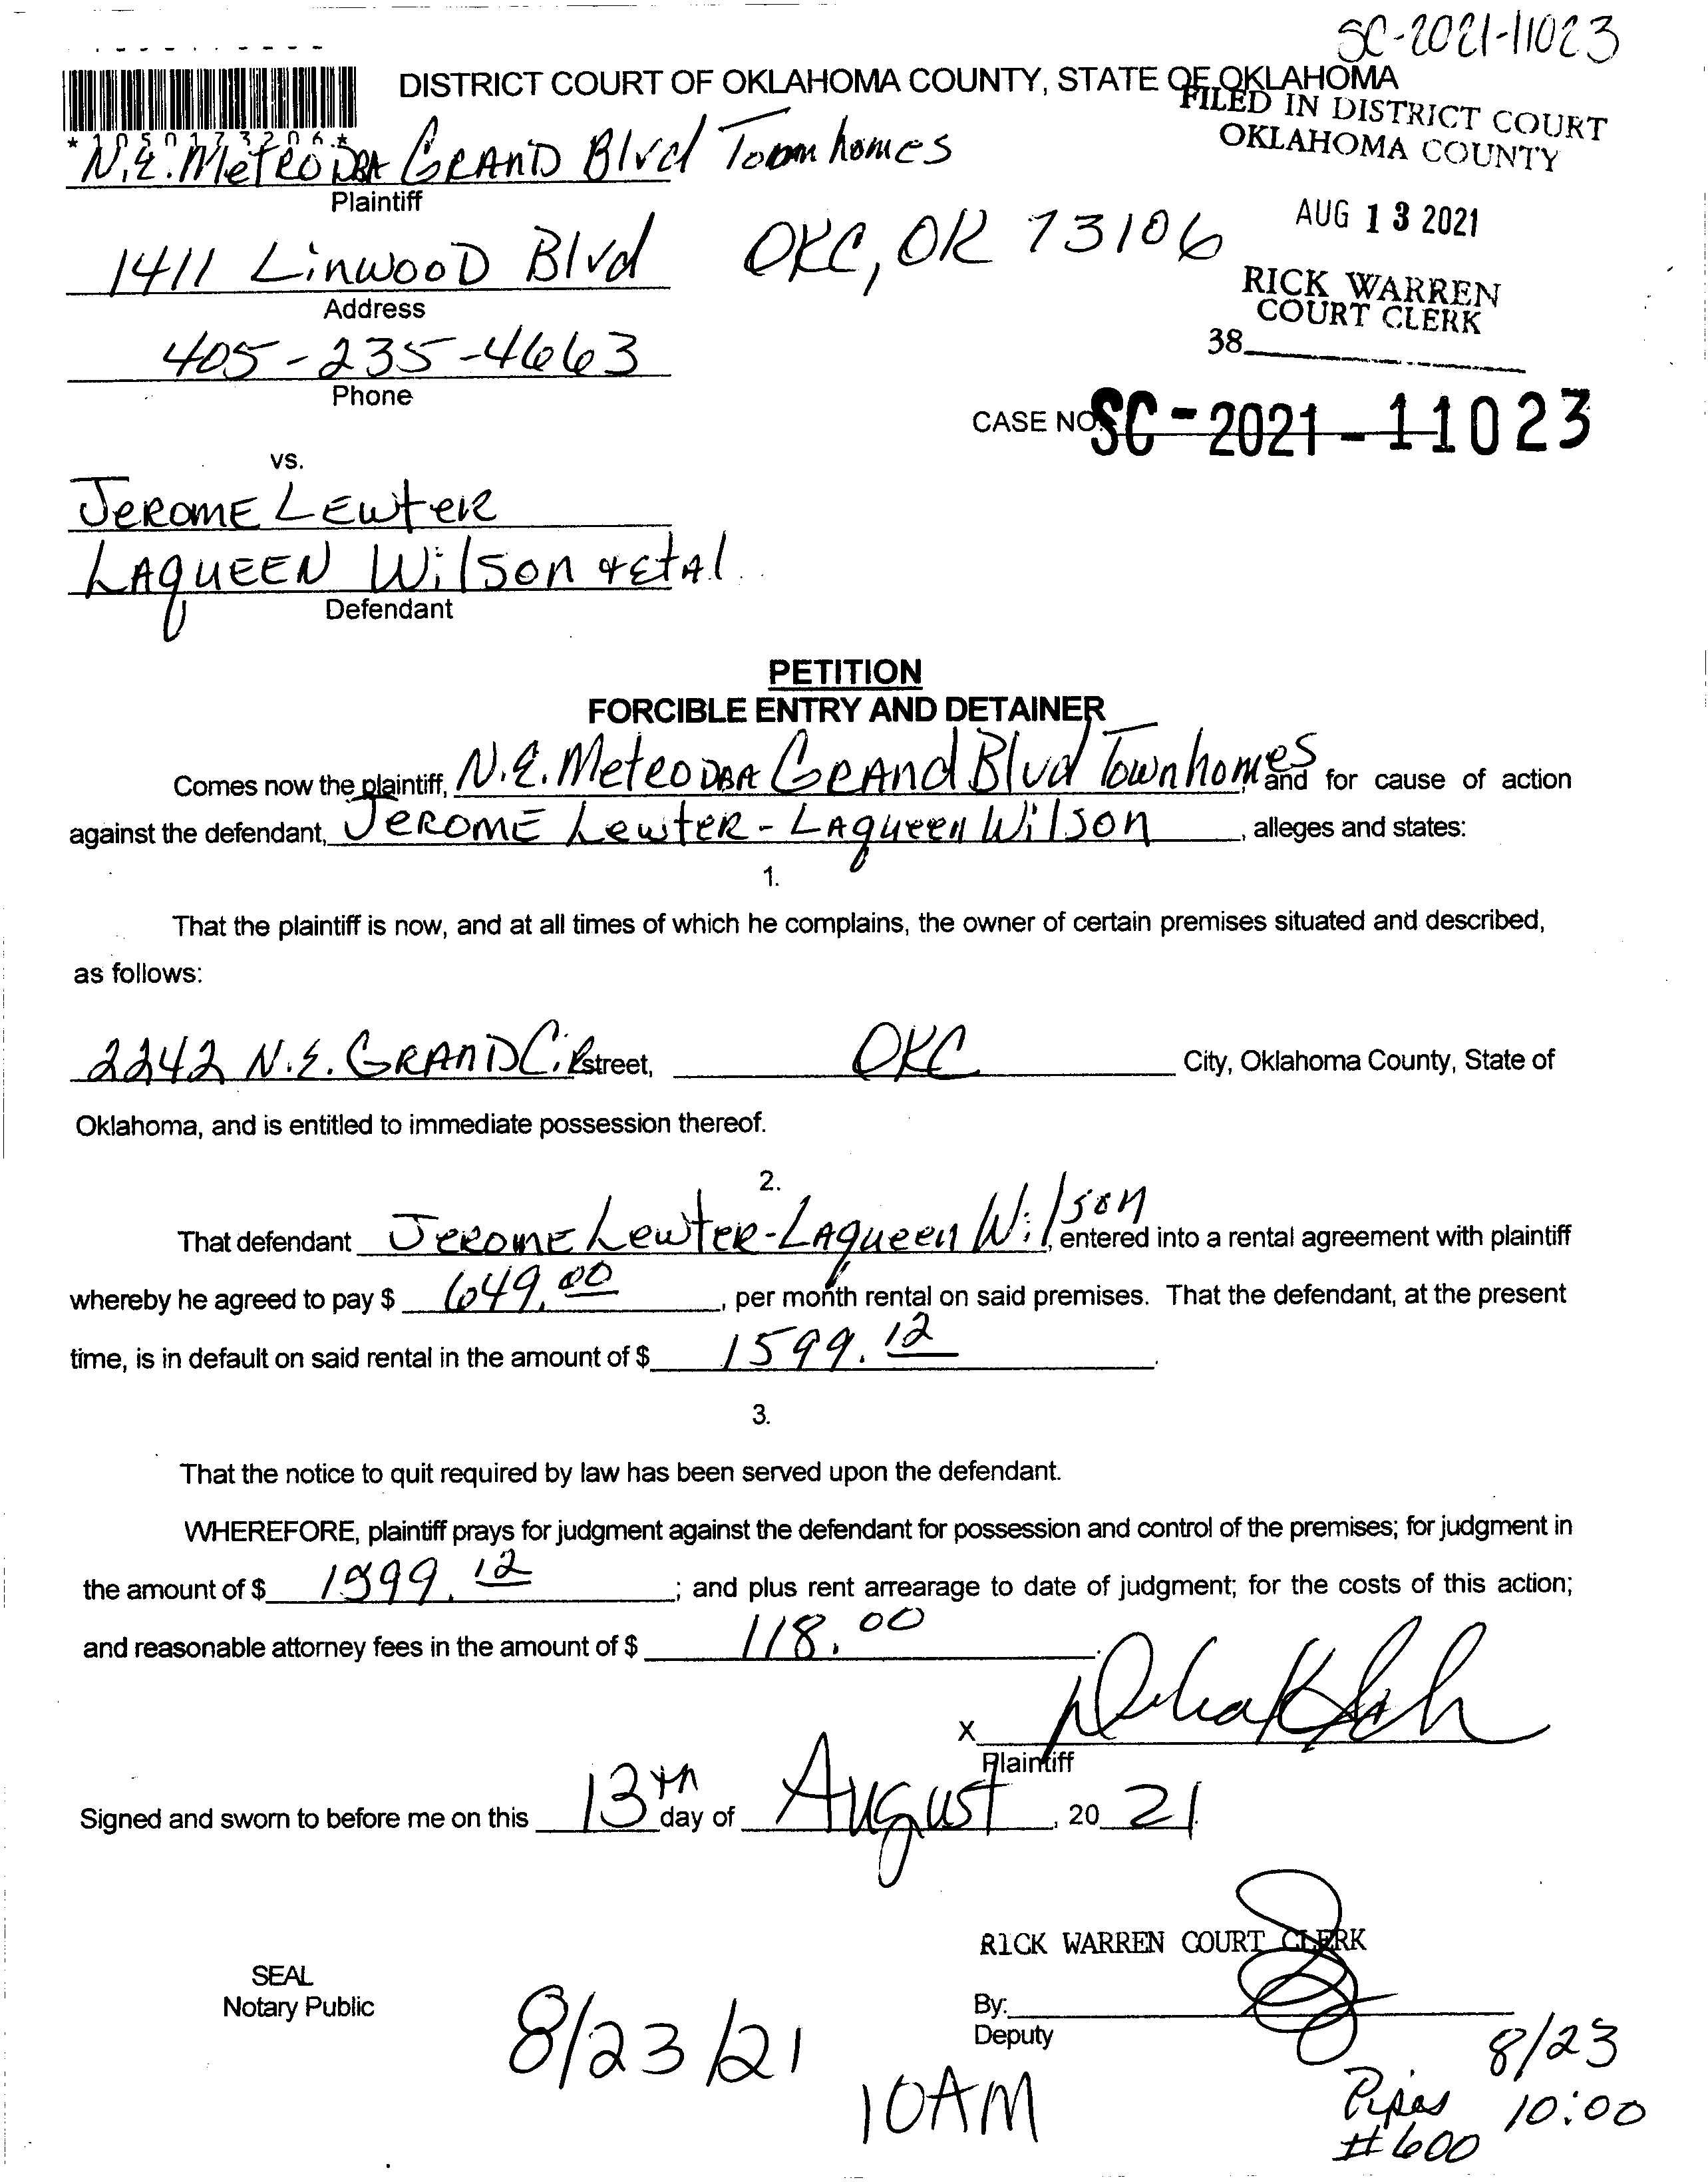 SC-2021-11023
DISTRICT COURT OF OKLAHOMA COUNTY, STATE OF OKLAHOMA
FILED IN DISTRICT COURT
OKLAHOMA COUNTY
*1050173206*
N.E. Metro DBA GRAND Blvd Townhomes
Plaintiff
AUG 13 2021
1411 LinwooD Blvd OKC, OK 73106
Address
RICK WARREN
COURT CLERK
38
405-235-4663
Phone
CASE NO. SC-2021-11023
vs.
JEROME LEwteR
LAQUEEN Wilson & EtAl
Defendant
PETITION
FORCIBLE ENTRY AND DETAINER
Comes now the plaintiff, N.E. Metro DBA GRAnd Blvd Townhomes, and for cause of action
against the defendant, JEROME LewteR - LAqueen Wilson, alleges and states:
1.
That the plaintiff is now, and at all times of which he complains, the owner of certain premises situated and described,
as follows:
2242 N.E. GRAND CiR street, OKC City, Oklahoma County, State of
Oklahoma, and is entitled to immediate possession thereof.
2.
That defendant JEROME LewteR-LAqueen Wilson, entered into a rental agreement with plaintiff
whereby he agreed to pay $ 649.00, per month rental on said premises. That the defendant, at the present
time, is in default on said rental in the amount of $ 1599.12.
3.
That the notice to quit required by law has been served upon the defendant.
WHEREFORE, plaintiff prays for judgment against the defendant for possession and control of the premises; for judgment in
the amount of $ 1599.12; and plus rent arrearage to date of judgment; for the costs of this action;
and reasonable attorney fees in the amount of $ 118.00.
X
Plaintiff
Signed and sworn to before me on this 13th day of AUGUST, 20 21.
RICK WARREN COURT CLERK
SEAL
Notary Public
By:
Deputy
8/23/21
10AM
8/23
Pipes 10:00
#600